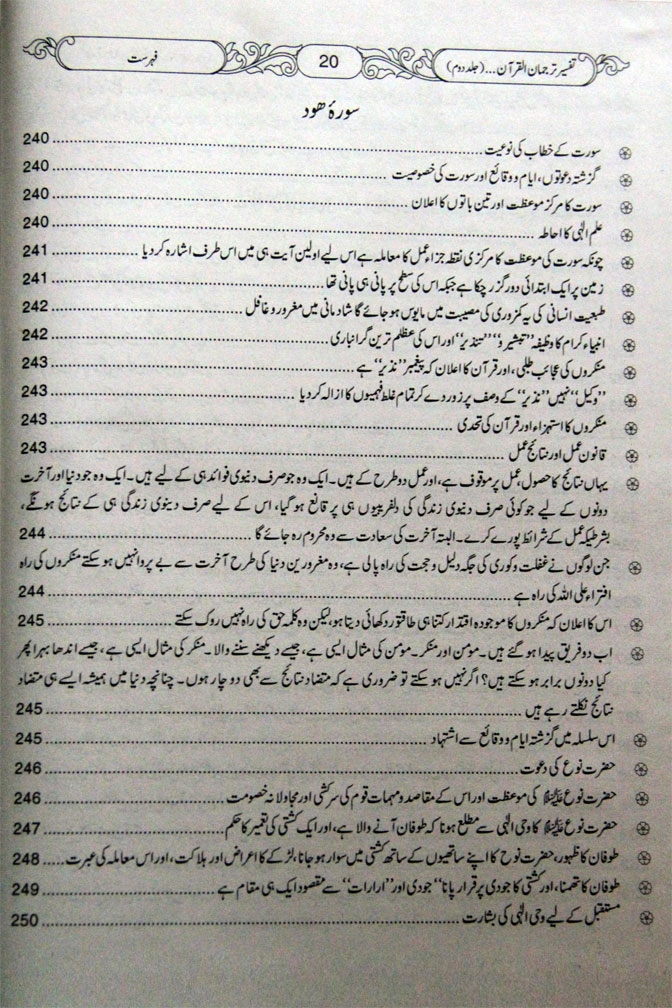 تفسیر ترجمان القرآن... (جلد دوم) 20 فہرست
سورۂ ھود
سورت کے خطاب کی نوعیت 240
گزشتہ دعوتوں، ایام و وقائع اور سورت کی خصوصیت 240
سورت کا مرکز موعظت اور تین باتوں کا اعلان 240
علم الٰہی کا احاطہ 240
چونکہ سورت کی موعظت کا مرکزی نقطہ جزاء عمل کا معاملہ ہے اس لیے اولین آیت ہی میں اس طرف اشارہ کر دیا 241
زمین پر ایک ابتدائی دور گزر چکا ہے جبکہ اس کی سطح پر پانی ہی پانی تھا 241
طبعیت انسانی کی یہ کمزوری کی مصیبت میں مایوس ہو جائے گا شادمانی میں مغرور و غافل 242
انبیاء کرام کا وظیفہ ”تبشیر و“ ”تنذیر“ اور اس کی عظیم ترین گرانباری 242
منکروں کی عجائب طلبی، اور قرآن کا اعلان کہ پیغمبر ”نذیر“ ہے 243
”وکیل“ نہیں ”نذیر“ کے وصف پر زور دے کر تمام غلط فہمیوں کا ازالہ کر دیا 243
منکروں کا استہزاء اور قرآن کی تحدی 243
قانون عمل اور نتائج عمل 243
یہاں نتائج کا حصول عمل پر موقوف ہے، اور عمل دو طرح کے ہیں۔ ایک وہ جو صرف دنیوی فوائد ہی کے لیے ہیں۔ ایک وہ جو دنیا اور آخرت
دونوں کے لیے جو کوئی صرف دنیوی زندگی کی دلفریبیوں ہی پر قانع ہو گیا، اس کے لیے صرف دینوی زندگی ہی کے نتائج ہونگے،
بشرطیکہ عمل کے شرائط پورے کرے۔ البتہ آخرت کی سعادت سے وہ محروم رہ جائے گا 244
جن لوگوں نے غفلت و کوری کی جگہ دلیل و حجت کی راہ پالی ہے، وہ مغرورین دنیا کی طرح آخرت سے بے پروا نہیں ہو سکتے منکروں کی راہ
افتراء علی اللہ کی راہ ہے 244
اس کا اعلان کہ منکروں کا موجودہ اقتدار کتنا ہی طاقتور دکھائی دیتا ہو، لیکن وہ کلمہ حق کی راہ نہیں روک سکتے 245
اب دو فریق پیدا ہو گئے ہیں۔ مؤمن اور منکر۔ مؤمن کی مثال ایسی ہے، جیسے دیکھنے سننے والا۔ منکر کی مثال ایسی ہے، جیسے اندھا بہرا پھر
کیا دونوں برابر ہو سکتے ہیں؟ اگر نہیں ہو سکتے تو ضروری ہے کہ متضاد نتائج سے بھی دو چار ہوں۔ چنانچہ دنیا میں ہمیشہ ایسے ہی متضاد
نتائج نکلتے رہے ہیں 245
اس سلسلہ میں گزشتہ ایام و وقائع سے اشتہاد 245
حضرت نوع کی دعوت 246
حضرت نوع ﷺ کی موعظت اور اس کے مقاصد و مہمات قوم کی سرکشی اور مجادلانہ خصومت 246
حضرت نوع ﷺ کا وحی الٰہی سے مطلع ہونا کہ طوفان آنے والا ہے، اور ایک کشتی کی تعمیر کا حکم 247
طوفان کا ظہور، حضرت نوح کا اپنے ساتھیوں کے ساتھ کشتی میں سوار ہو جانا، لڑکے کا اعراض اور ہلاکت، اور اس معاملہ کی عبرت 248
طوفان کا تھمنا، اور کشتی کا جودی پر قرار پانا ”جودی اور“ ”ارارات“ سے مقصود ایک ہی مقام ہے 249
مستقبل کے لیے وحی الٰہی کی بشارت 250